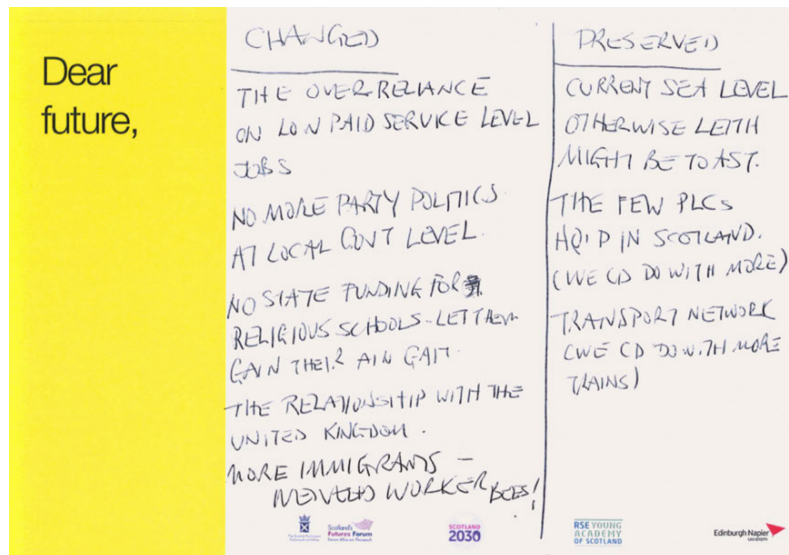 Dear
future,
CHANGED
THE OVER-RELIANCE
ON LOW PAID SERVICE LEVEL
JOBS
NO MORE PARTY POLITICS
AT LOCAL GOVT LEVEL.
NO STATE FUNDING FOR
RELIGIOUS SCHOOLS - LET THEM
GAIN THEIR AIN GAIT.
THE RELATIONSHIP WITH THE
UNITED KINGDOM.
MORE IMMIGRANTS -
WORKER BEES!
PRESERVED
CURRENT SEA LEVEL
OTHERWISE LEITH
MIGHT BE TOAST.
THE FEW PLCs
HQ'D IN SCOTLAND.
(WE CD DO WITH MORE)
TRANSPORT NETWORK
(WE CD DO WITH MORE
TRAINS)
Scotland's
Futures Forum
SCOTLAND
2030
RSE YOUNG
ACADEMY
OF SCOTLAND
Edinburgh Napier
UNIVERSITY